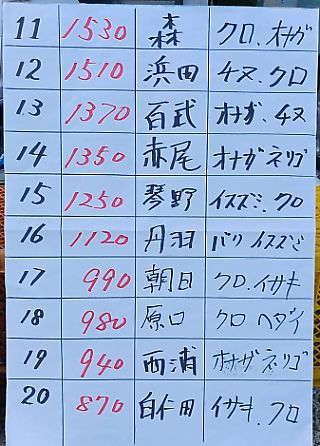 11 1530 森 クロ.オナガ
12 1510 浜田 チヌ.クロ
13 1370 百武 オナガ.チヌ
14 1350 赤尾 オナガ ネリゴ
15 1250 琴野 イスズミ.クロ
16 1120 丹羽 バリ イスズミ
17 990 朝日 クロ.イサキ
18 980 原口 クロ ヘダイ
19 940 西浦 オナガ ネリゴ
20 870 白仁田 イサキ.クロ